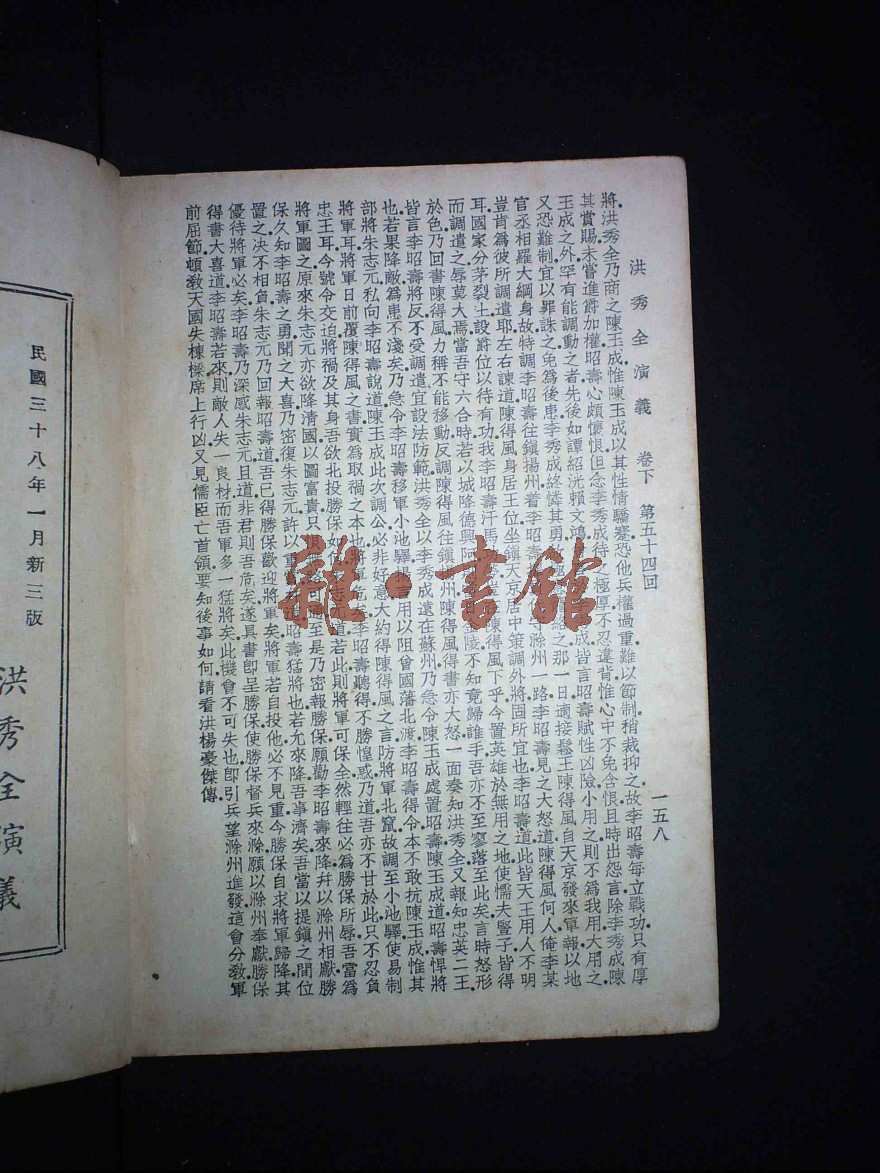 洪秀全演義 卷下 第五十四回 一五八
將.洪秀全乃商之陳玉成.惟陳玉成以其性情驕蹇.恐他兵權過重.難以節制.稍裁抑之.故李昭壽每立戰功.只有厚
其賞賜.未嘗進爵加權.昭壽心頗懷恨.但念李秀成待之極厚.不忍違背.惟心中不免含恨.且時出怨言.除李秀成陳
玉成之外.罕有能調動之者.先後如譚紹洸賴文鴻 成皆言昭壽賦性凶險.小用之則不爲我用.大用之.
又恐難制.宜以罪誅之.免爲後患.李秀成終憐其勇 之.那一日適接鬆王陳得風自天京發來軍報.以地
官丞相羅大綱身故.特調李昭壽往鎮揚州.着李昭壽 守滁州一路.李昭壽見之大怒道.陳得風何人.俺李某
豈肯爲彼所調遣耶.左右諫道.陳得風身居王位.坐鎮天京.居中策調外將.固所宜也.李昭壽道.此皆天王用人不明
耳.國家分茅裂土.設爵位以待有功.我李昭壽汗馬 陳得風下乎.今置英雄於無用之地.使懦夫豎子皆得
而調遣之.辱莫大焉.當吾守六合時.若以城降德興阿 金陵不知竟歸誰手.吾亦不至寥落至此矣.言時怒形
於色.乃回書陳得風.力稱不能移動.陳得風往鎮 州.陳得風得書亦大怒.一面奏知洪秀全.又報知忠英二王.
皆言李昭壽將反.不受調遣.宜設法防範.洪秀全以李秀成遠在蘇州.乃急令陳玉成處置昭壽.陳玉成道.昭壽悍將
也.若果降敵.爲患不淺矣.乃急令李昭壽移軍小池驛 言用以阻曾國藩北渡.李昭壽得令.本不敢抗陳玉成.惟其
部將朱志元私向李昭壽說道.陳玉成此次調公.必非好意.大約得陳得風之言.防將軍北竄.故調至小池驛.使易制
將軍耳.將軍日前覆陳得風之書.實爲取禍之本也.將軍危 李昭壽聽得.不勝惶惑.乃道.吾亦不甘於此.只不忍負
忠王耳.今號令交迫.將禍及其身.吾欲北投勝保如何 志元道.若此則將軍可保全.然輕往必爲勝保所辱.吾當爲
將軍圖之.原來朱志元亦欲降清國.以圖富貴.只恨無路可通.至是乃密報勝保.願勸李昭壽來降.幷以滁州相獻.勝
保久知李昭壽之勇.聞之大喜.乃密復朱志元.許以重 昭壽猛將也.若允來降.吾事濟矣.吾當以提鎮之間位
置之.決不相負.朱志元乃回報昭壽道.吾已得勝保歡迎將軍矣.將軍若自投他.必不見重.今勝保自求將軍歸降.其
優待將軍必矣.李昭壽乃深感朱志元.且道.非君則吾危矣.遂具書卽呈勝保.使勝保督兵來滁.願以滁州奉獻.勝保
得書大喜道.李昭壽若來.則敵人失一良材.而吾軍多一猛將矣.此機會不可失也.卽引兵望滁州進發.這會分敎.軍
前屈節.頓敎天國失棟樑.席上行凶.又見儒臣亡首領.要知後事如何.請看洪楊豪傑傳.
雜·書館
民國三十八年一月新三版
洪秀全演義